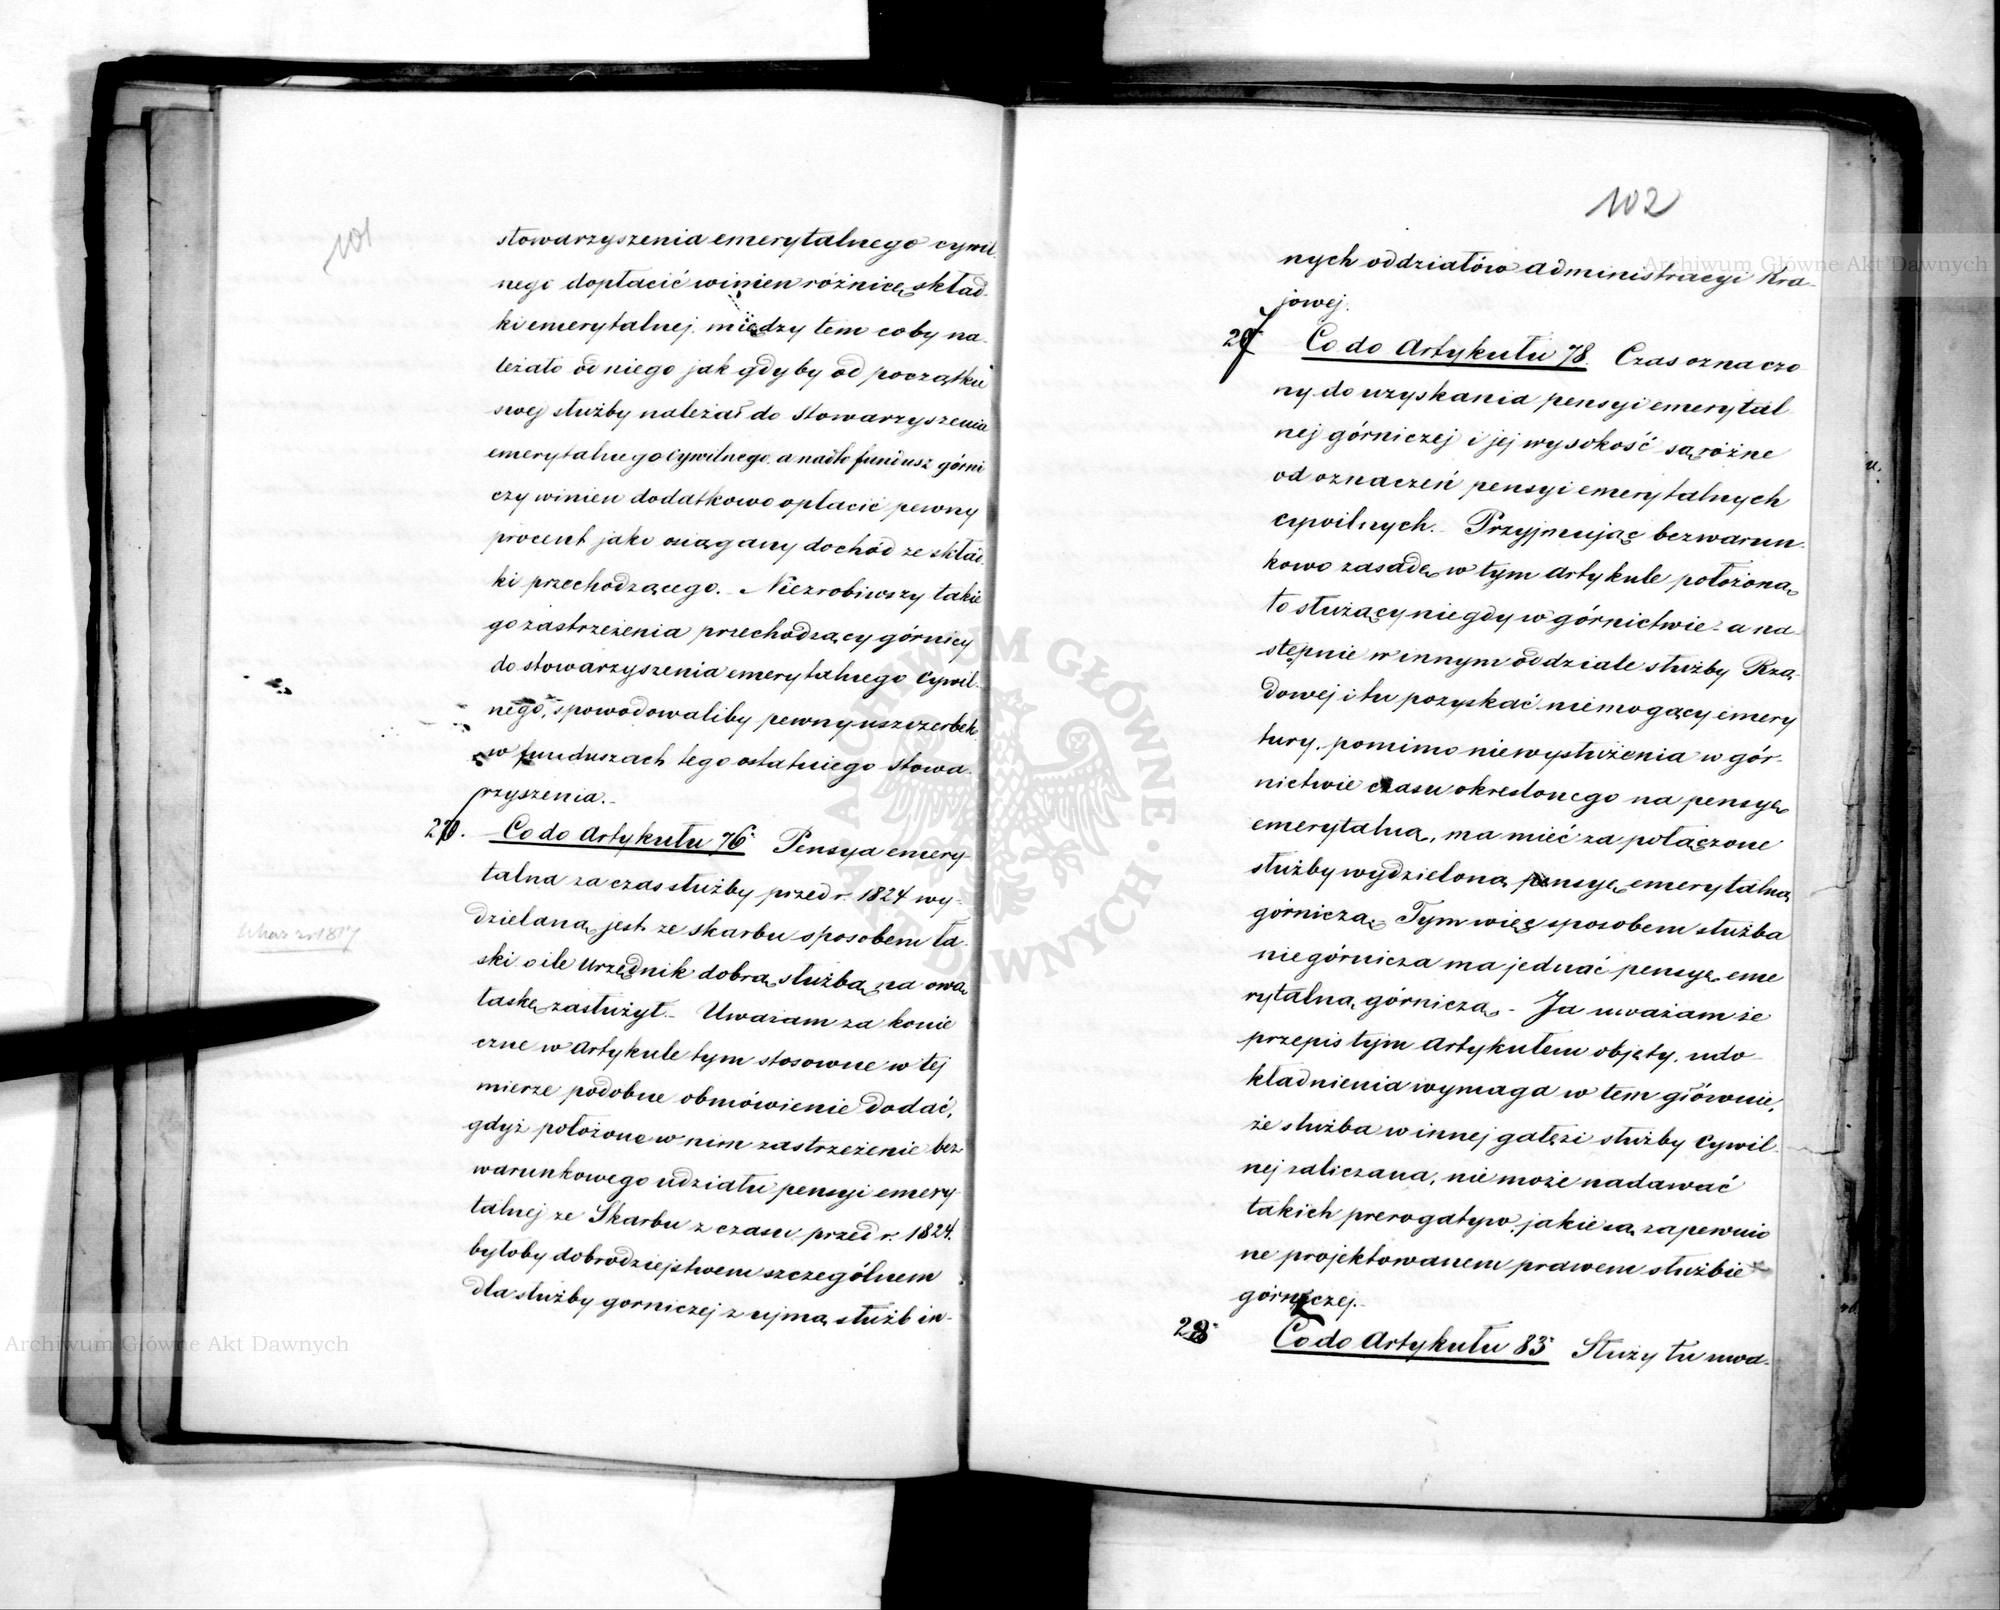 101
stowarzyszenia emerytalnego cywil-
nego dopłacić winien różnicę skład-
ki emerytalnej, między tem coby na-
leżało od niego jak gdyby od początku
swej służby należał do Stowarzyszenia
emerytalnego cywilnego, a nadto fundusz górni
czy winien dodatkowo opłacić pewny
procent jako osiągany dochód ze skład-
ki przechodzącego. - Niezrobiwszy takie
go zastrzeżenia przechodzący górnicy
do stowarzyszenia emerytalnego cywil-
nego, spowodowaliby pewny uszczerbek
w funduszach tego ostatniego Stowa-
rzyszenia. -
Co do Artykułu 76. Pensya emery-
talna za czas służby przed r. 1824 wy-
dzielaną jest ze skarbu sposobem ła-
ski o ile urzędnik dobrą służbą na ową
łaskę zasłużył. - Uważam za konie
czne w Artykule tym stosowne w tej
mierze podobne obmówienie dodać,
gdyż położone w nim zastrzeżenie bez
warunkowego udziału pensyi emery
talnej ze Skarbu z czasu przed r. 1824.
byłoby dobrodziejstwem szczególnem
dla służby gorniczej z ujmą służb in-
102
nych oddziałów administracyi Kra-
jowej.
27 Co do Artykułu 78. Czas oznaczo
ny do uzyskania pensyi emerytal
nej górniczej i jej wysokość są różne
od oznaczeń pensyi emerytalnych
cywilnych. - Przyjmując bezwarun-
kowo zasadę w tym Artykule położoną
to służący niegdy w górnictwie - a na-
stępnie w innym oddziale służby Rzą-
dowej i tu pozyskać niemogący emery
tury, pomimo niewysłużenia w gór-
nictwie czasu określonego na pensyę
emerytalną, ma mieć za połączone
służby wydzieloną pensyę emerytalną
górniczą. Tym więc sposobem służba
niegórnicza ma jednać pensyę eme
rytalną górniczą. - Ja uważam że
przepis tym Artykułem objęty, udo-
kładnienia wymaga w tem głównie,
że służba w innej gałęzi służby cywil-
nej zaliczana, nie może nadawać
takich prerogatyw, jakie są zapewnio
ne projektowanem prawem służbie
górniczej. -
28. Co do Artykułu 83. Służy tu uwa-
Archiwum Główne Akt Dawnych
Archiwum Główne Akt Dawnych
ARCHIWUM GŁÓWNE AKT DAWNYCH